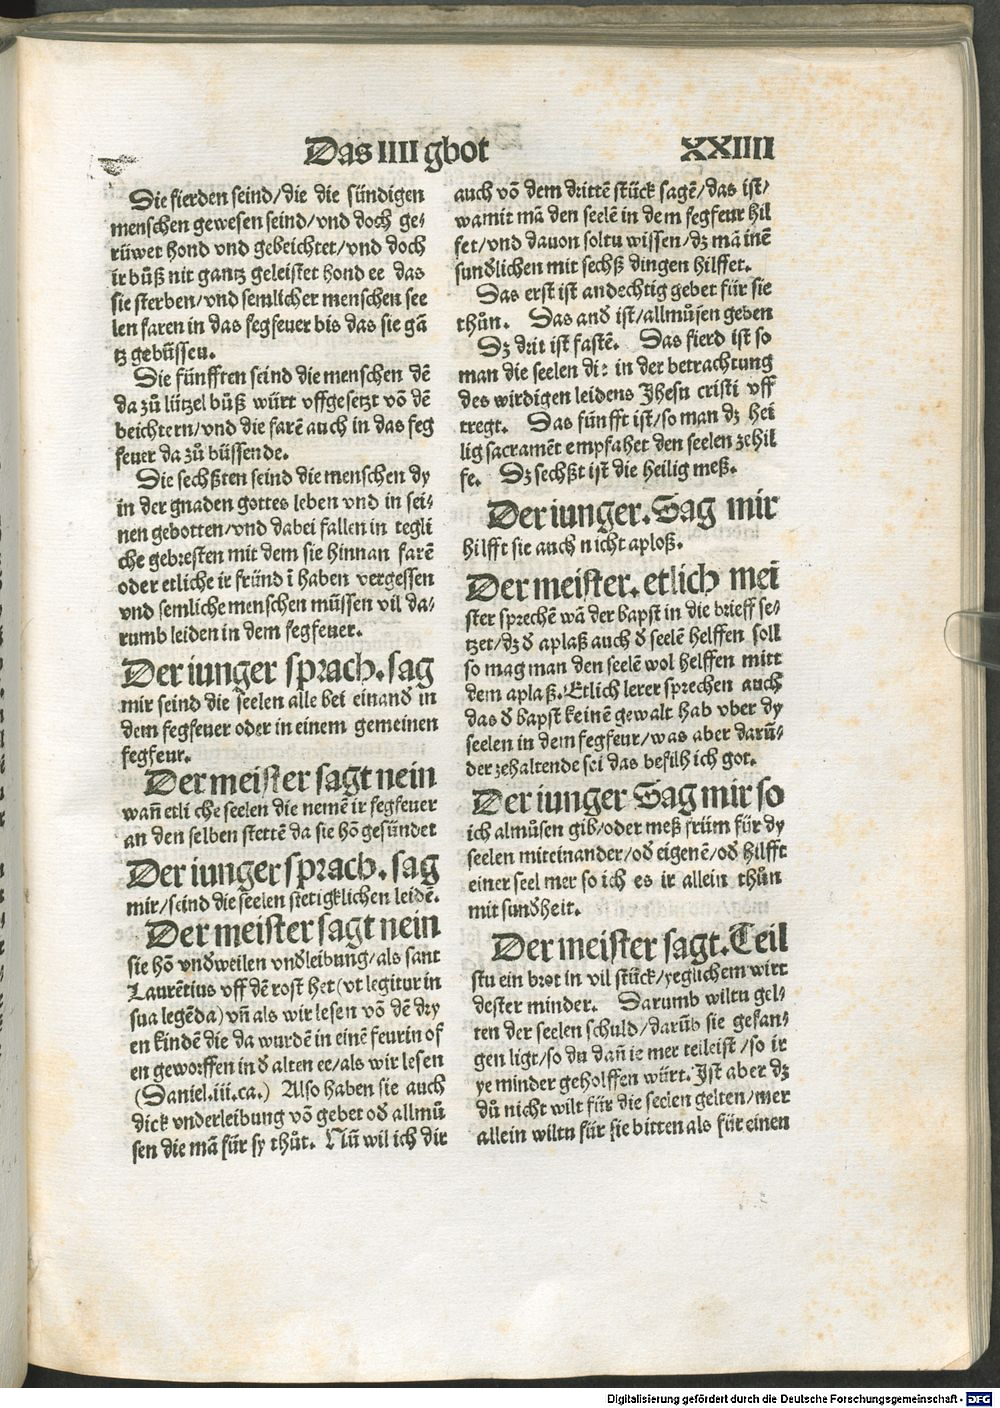 Das IIII gbot
XXIIII
Die fierden seind/die die sündigen
menschen gewesen seind/vnd doch ge⸗
rüwet hond vnd gebeichtet/vnd doch
ir bůß nit gantz geleistet hond ee das
sie sterben/vnd semlicher menschen see
len faren in das fegfeuer bis das sie gā
tz gebüssen.
Die fünfften seind die menschen dē
da zů lützel bůß würt vffgesetzt vō dē
beichtern/vnd die farē auch in das feg
feuer da zů büssende.
Die sechßten seind die menschen dy
in der gnaden gottes leben vnd in sei⸗
nen gebotten/vnd dabei fallen in tegli
che gebresten mit dem sie hinnan farē
oder etliche ir fründ ī haben vergessen
vnd semliche menschen müssen vil da⸗
rumb leiden in dem fegfeuer.
Der iunger sprach. sag
mir seind die seelen alle bei einand̄ in
dem fegfeuer oder in einem gemeinen
fegfeur.
Der meister sagt nein
wañ etli che seelen die nemē ir fegfeuer
an den selben stettē da sie hō gesündet
Der iunger sprach. sag
mir/seind die seelen stetigklichen leidē.
Der meister sagt nein
sie hō vnd̄weilen vnd̄leibung/als sant
Laurētius vff dē rost het (vt legitur in
sua legēda) vñ als wir lesen vō dē dry
en kindē die da wurdē in einē feurin of
en geworffen in d̄ alten ee/als wir lesen
(Daniel.iii.ca.) Also haben sie auch
dick vnderleibung vō gebet od̄ allmů
sen die mā für sy thůt. Nū wil ich dir
auch vō dem drittē stück sagē/das ist/
wamit mā den seelē in dem fegfeur hil
fet/vnd dauon soltu wissen/dz mā inē
sund̄lichen mit sechß dingen hilffet.
Das erst ist andechtig gebet für sie
thůn. Das and̄ ist/allmůsen geben
Dz drit ist fastē. Das fierd ist so
man die seelen di: in der betrachtung
des wirdigen leidens Jhesu cristi vff
tregt. Das fünfft ist/so man dz hei
lig sacramēt empfahet den seelen ze hil
fe. Dz sechßt ist die heilig meß.
Der iunger. Sag mir
hilfft sie auch nicht aploß.
Der meister. etlich mei
ster sprechē wā der bapst in die brieff se⸗
tzet/dz d̄ aplaß auch d̄ seelē helffen soll
so mag man den seelē wol helffen mitt
dem aplaß. Etlich lerer sprechen auch
das d̄ bapst keinē gewalt hab vber dy
seelen in dem fegfeur/was aber darū⸗
der ze haltende sei das befilh ich got.
Der iunger Sag mir so
ich almůsen gib/oder meß frům für dy
seelen miteinander/od̄ eigenē/od̄ hilfft
einer seel mer so ich es ir allein thůn
mit sund̄heit.
Der meister sagt. Teil
stu ein brot in vil stück/yeglichem wirt
dester minder. Darumb wiltu gel⸗
ten der seelen schuld/darūb sie gefan⸗
gen ligt/so du dañ ie mer teileist/so ir
ye minder geholffen würt. Ist aber dz
dů nicht wilt für die seelen gelten/mer
allein wiltu für sie bitten als für einen
Digitalisierung gefördert durch die Deutsche Forschungsgemeinschaft - DFG